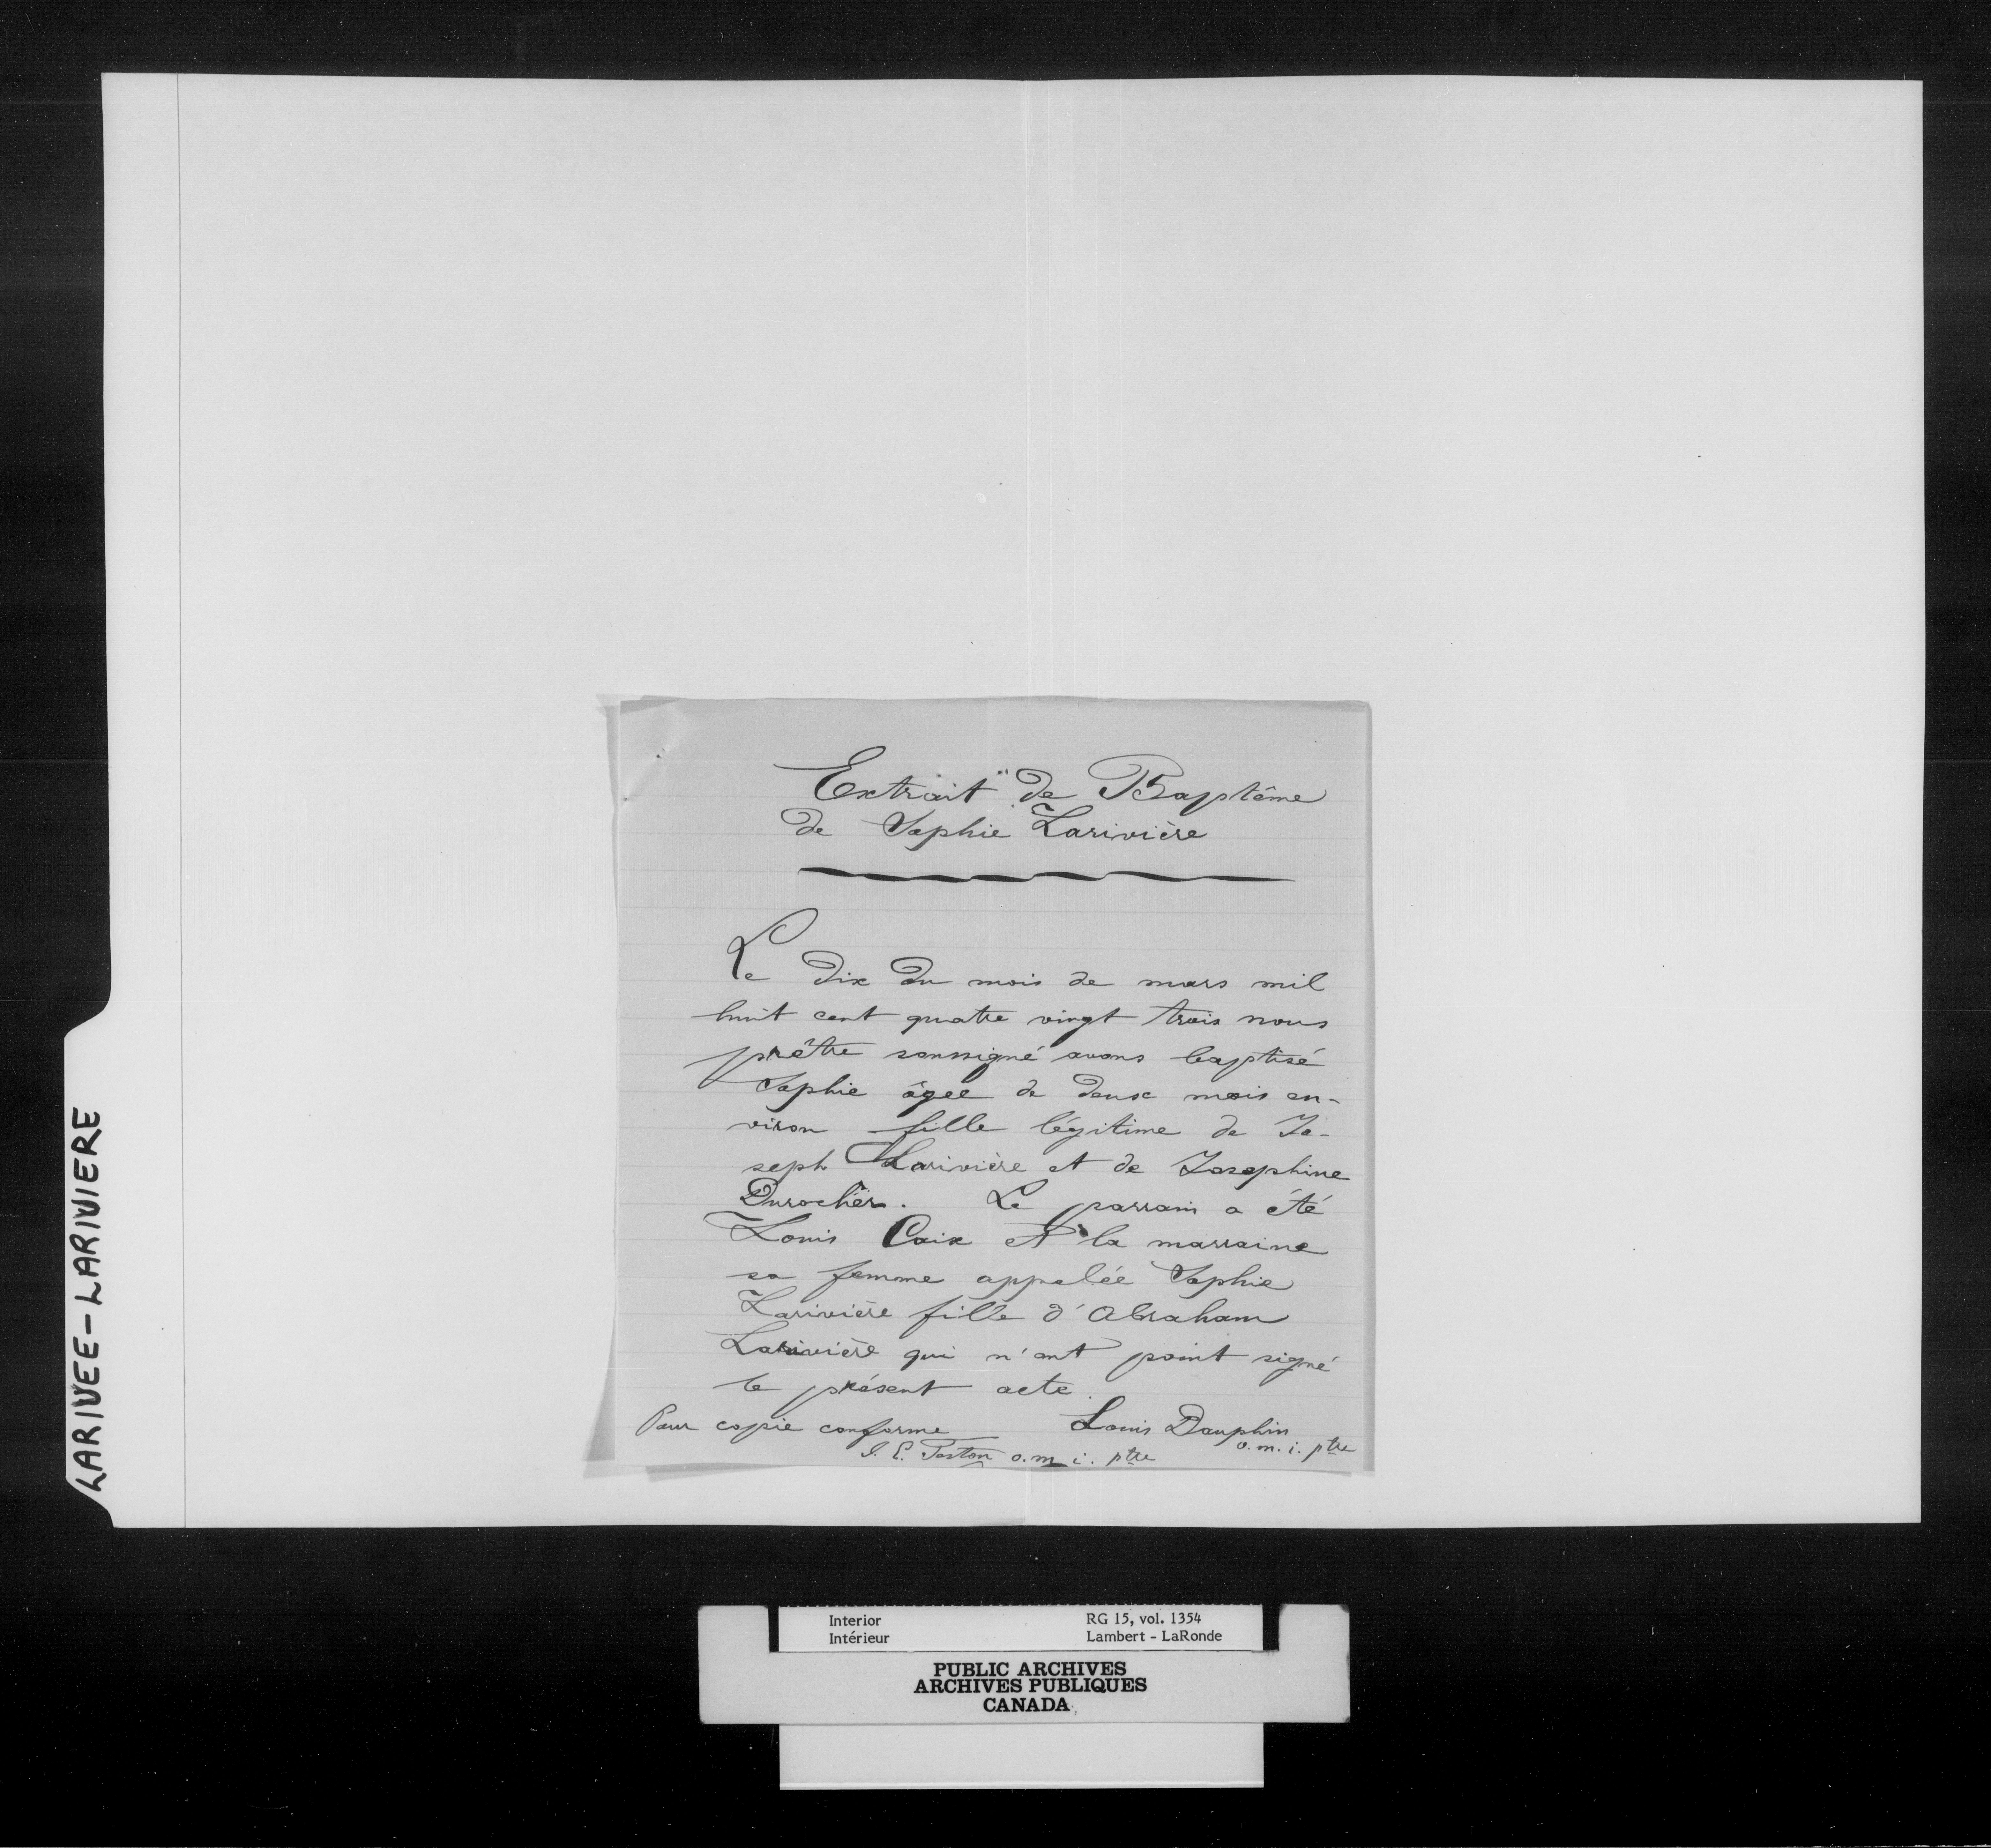 LARIVEE - LARIVIERE
Extrait de Baptême
de Sophie Larivière
Le dix du mois de mars mil
huit cent quatre vingt trois nous
prêtre soussigné avons baptisé
Sophie âgée de deux mois en-
viron fille légitime de Jo-
seph Larivière et de Josephine
Durocher. Le parrain a été
Louis Caix et la marraine
sa femme appelée Sophie
Larivière fille d'Abraham
Larivière qui n'ont point signé
le présent acte.
Pour copie conforme Louis Dauphin
o.m.i. ptre
o.m.i. ptre
Interior RG 15, vol. 1354
Intérieur Lambert - LaRonde
PUBLIC ARCHIVES
ARCHIVES PUBLIQUES
CANADA